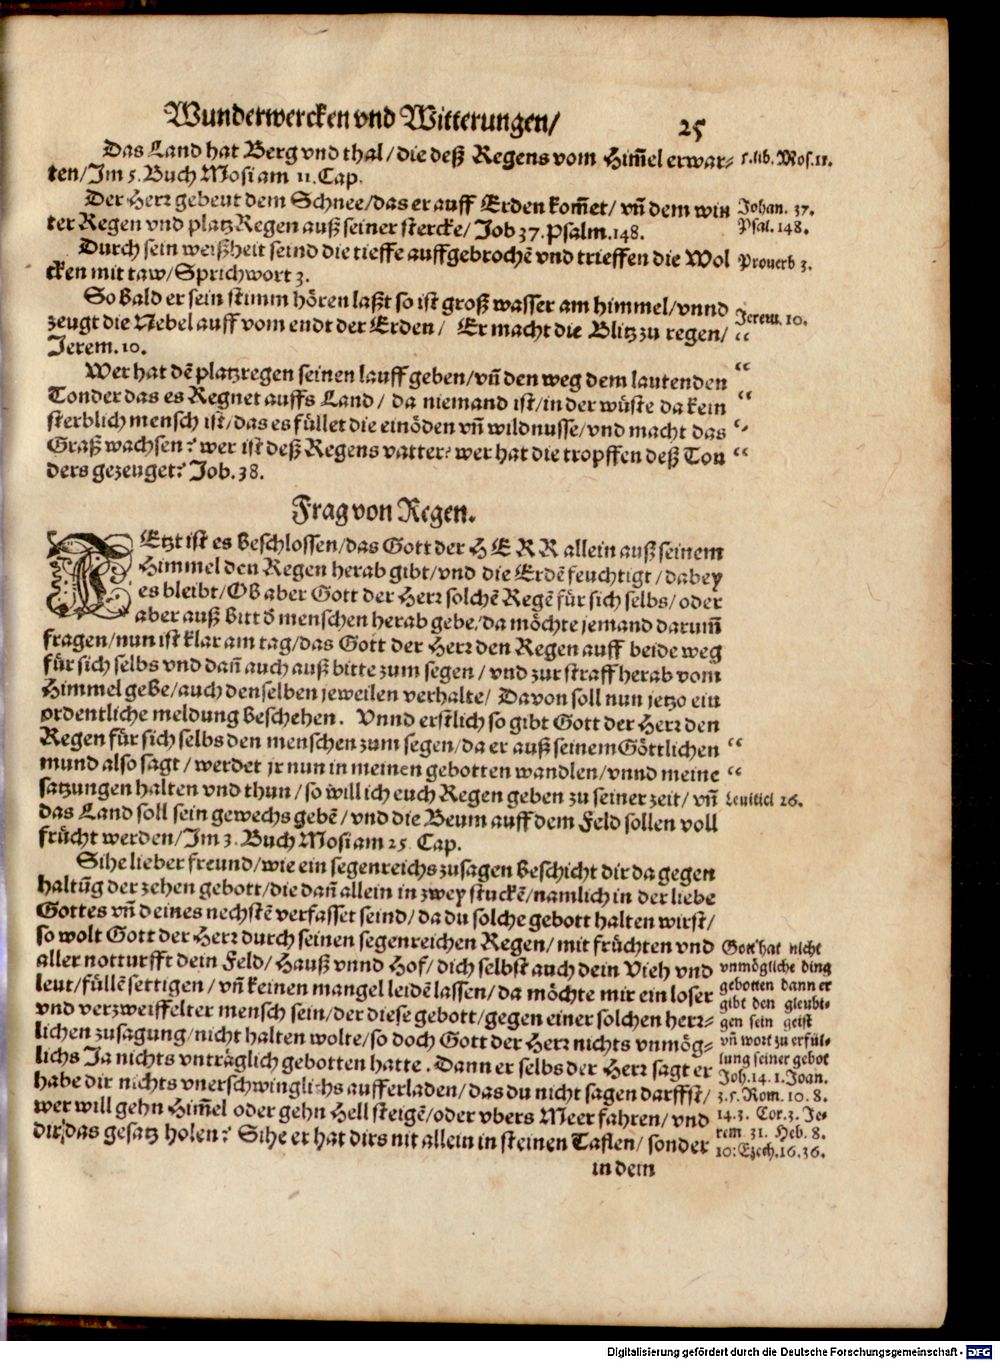 Wunderwercken vnd Witterungen/ 25
Das Land hat Berg vnd thal/die deß Regens vom Him̃el erwar-
ten/Im 5. Buch Mosi am 11. Cap.
5. lib. Mos. 11.
Der Herr gebeut dem Schnee/das er auff Erden kom̃et/vn̄ dem win
ter Regen vnd platz Regen auß seiner stercke/Job 37. Psalm. 148.
Johan. 37.
Psal. 148.
Durch sein weißheit seind die tieffe auffgebrochẽ vnd trieffen die Wol
cken mit taw/Sprichwort 3.
Prouerb 3.
So bald er sein stimm hören laßt so ist groß wasser am himmel/vnnd
zeugt die Nebel auff vom endt der Erden/ Er macht die Blitz zu regen/
Jerem. 10.
Jerem. 10.
“
Wer hat dẽ platzregen seinen lauff geben/vn̄ den weg dem lautenden
“
Tonder das es Regnet auffs Land/ da niemand ist/in der wüste da kein
“
sterblich mensch ist/das es füllet die einöden vn̄ wildnusse/vnd macht das
“
Graß wachsen? wer ist deß Regens vatter? wer hat die tropffen deß Ton
“
ders gezeuget? Job. 38.
Frag von Regen.
IEtzt ist es beschlossen/das Gott der HERR allein auß seinem
Himmel den Regen herab gibt/vnd die Erdẽ feuchtigt/dabey
es bleibt/Ob aber Gott der Herr solchẽ Regẽ für sich selbs/oder
aber auß bitt d̄ menschen herab gebe/da möchte jemand darum̃
fragen/nun ist klar am tag/das Gott der Herr den Regen auff beide weg
für sich selbs vnd dan̄ auch auß bitte zum segen/ vnd zur straff herab vom
Himmel gebe/auch denselben jeweilen verhalte/ Davon soll nun jetzo ein
ordentliche meldung beschehen. Vnnd erstlich so gibt Gott der Herr den
Regen für sich selbs den menschen zum segen/da er auß seinem Göttlichen
“
mund also sagt/werdet jr nun in meinen gebotten wandlen/vnnd meine
“
satzungen halten vnd thun/so will ich euch Regen geben zu seiner zeit/vn̄
Leuitici 26.
das Land soll sein gewechs gebẽ/vnd die Beum auff dem Feld sollen voll
frücht werden/Im 3. Buch Mosi am 25. Cap.
Sihe lieber freund/wie ein segenreichs zusagen beschicht dir da gegen
haltũg der zehen gebott/die dan̄ allein in zwey stuckẽ/namlich in der liebe
Gottes vn̄ deines nechstẽ verfasset seind/da du solche gebott halten wirst/
so wolt Gott der Herr durch seinen segenreichen Regen/mit früchten vnd
aller notturfft dein Feld/Hauß vnnd Hof/dich selbst auch dein Vieh vnd
leut/füllẽ settigen/vn̄ keinen mangel leidẽ lassen/da möchte mir ein loser
vnd verzweiffelter mensch sein/der diese gebott/gegen einer solchen herr-
lichen zusagung/nicht halten wolte/so doch Gott der Herr nichts vnmög-
lichs Ja nichts vnträglich gebotten hatte. Dann er selbs der Herr sagt er
habe dir nichts vnerschwinglichs aufferladen/das du nicht sagen darffst/
wer will gehn Him̃el oder gehn Hell steigẽ/oder vbers Meer fahren/vnd
dir/das gesatz holen? Sihe er hat dirs nit allein in steinen Taflen/sonder
Gott hat nicht
vnmögliche ding
gebotten dann er
gibt den gleubi-
gen sein geist
vn̄ wort zu erfül-
lung seiner gebot
Joh. 14. 1. Joan.
3. 5. Rom. 10. 8.
14. 3. Cor. 3. Je-
rem. 31. Heb. 8.
10: Ezech. 16. 36.
in dem
Digitalisierung gefördert durch die Deutsche Forschungsgemeinschaft - DFG